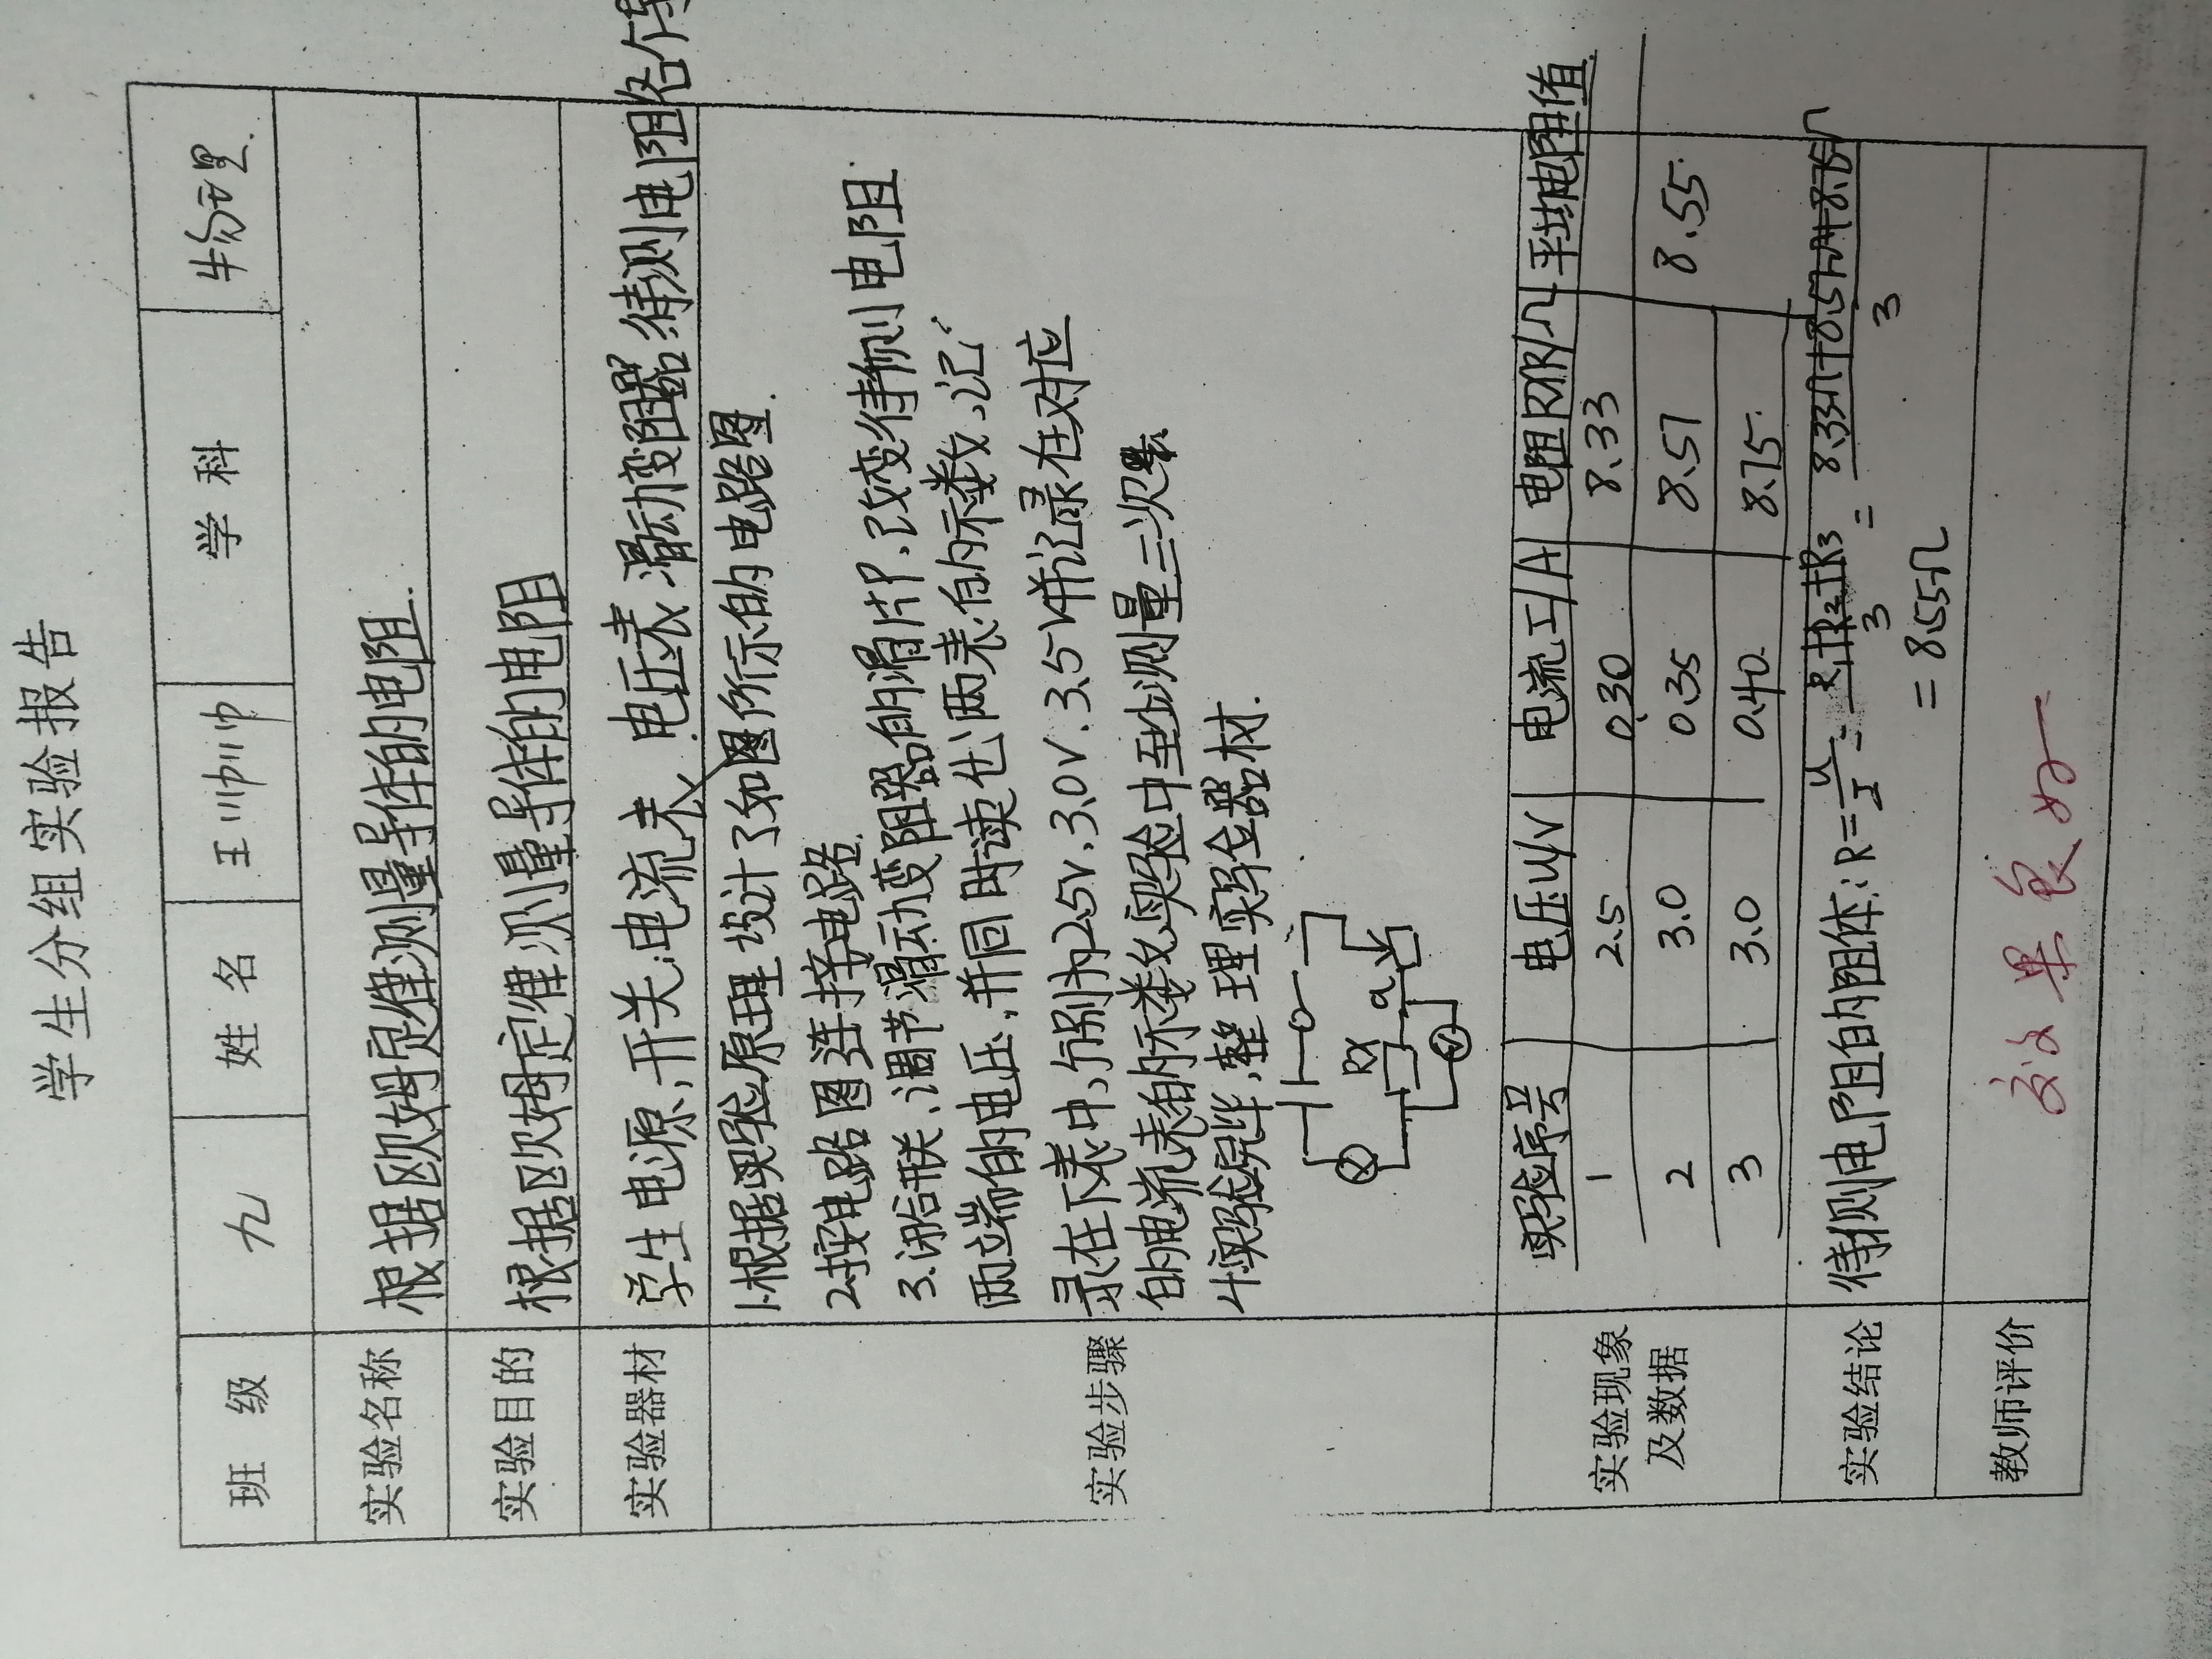 学生分组实验报告
班 级 九 姓 名 王帅帅 学 科 物理.
实验名称 根据欧姆定律测量导体的电阻.
实验目的 根据欧姆定律测量导体的电阻
实验器材 学生电源、开关、电流表、电压表、滑动变阻器、待测电阻各个
实验步骤
1.根据实验原理设计了如图所示的电路图.
2.按电路图连接电路.
3.闭合开关、调节滑动变阻器的滑片P.改变待测电阻.
两端的电压,并同时读出两表的示数、记
录在下表中,分别为2.5V、3.0V.3.5V并记录在对应
的电流表的示数,实验中至少测量三次
4.实验完毕,整理实验器材.
Rx
A
V
实验现象
及数据
实验序号 电压U/V 电流I/A 电阻R/Ω 平均电阻值
1 2.5 0.30 8.33
2 3.0 0.35 8.57 8.55.
3 3.0 0.40 8.75.
实验结论 待测电阻的阻体: R=U/I=R1+R2+R3/3=8.33Ω+8.57Ω+8.75Ω/3
=8.55Ω
教师评价 效果良好